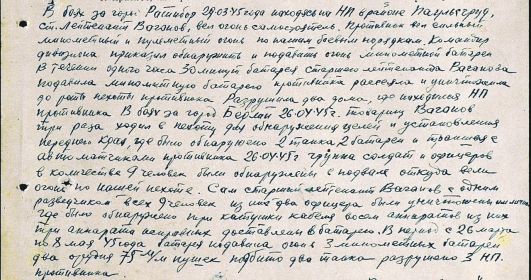 В боях за город Ратибор 28.03.45 года находясь на НП в районе
Ст. Лейтенант Ваганов, вел огонь Противник вел сильный
минометный и пулеметный огонь по нашим боевым порядкам, Командир
дивизиона приказал обнаружить и подавить огонь минометной батареи
В течении одного часа 30 минут батарея старшего лейтенанта Ваганова
подавила минометную батарею противника рассеяла и уничтожила
до роты пехоты противника Разрушила два дома, где находился НП
противника В боях за город Берлин 26.04.45г. товарищ Ваганов
три раза ходил в пехоту для обнаружения целей и установления
переднего края, где было обнаружено 2 танка 2 батареи и траншея с
автоматчиками противника 26.04.45г группа солдат и офицеров
в количестве 9 человек были обнаружены в подвале откуда вели
огонь по нашей пехоте. Сам старший лейтенант Ваганов с одним
разведчиком всех 9 человек из них два офицера были уничтожены
где было обнаружено три катушки кабеля восем аппаратов из них
три аппарата исправных доставлены в батарею. В период с 26 марта
по 8 мая 45 года батарея подавила огонь 3 минометных батареи
два орудия 75 м/м пушек подбито два танка разрушено 3 НП.
противника.